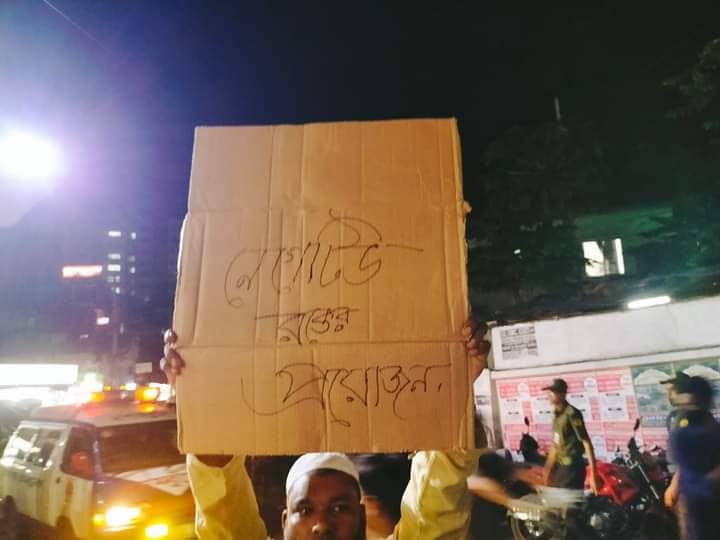 নেগেটিভ
রক্তের
প্রয়োজন.